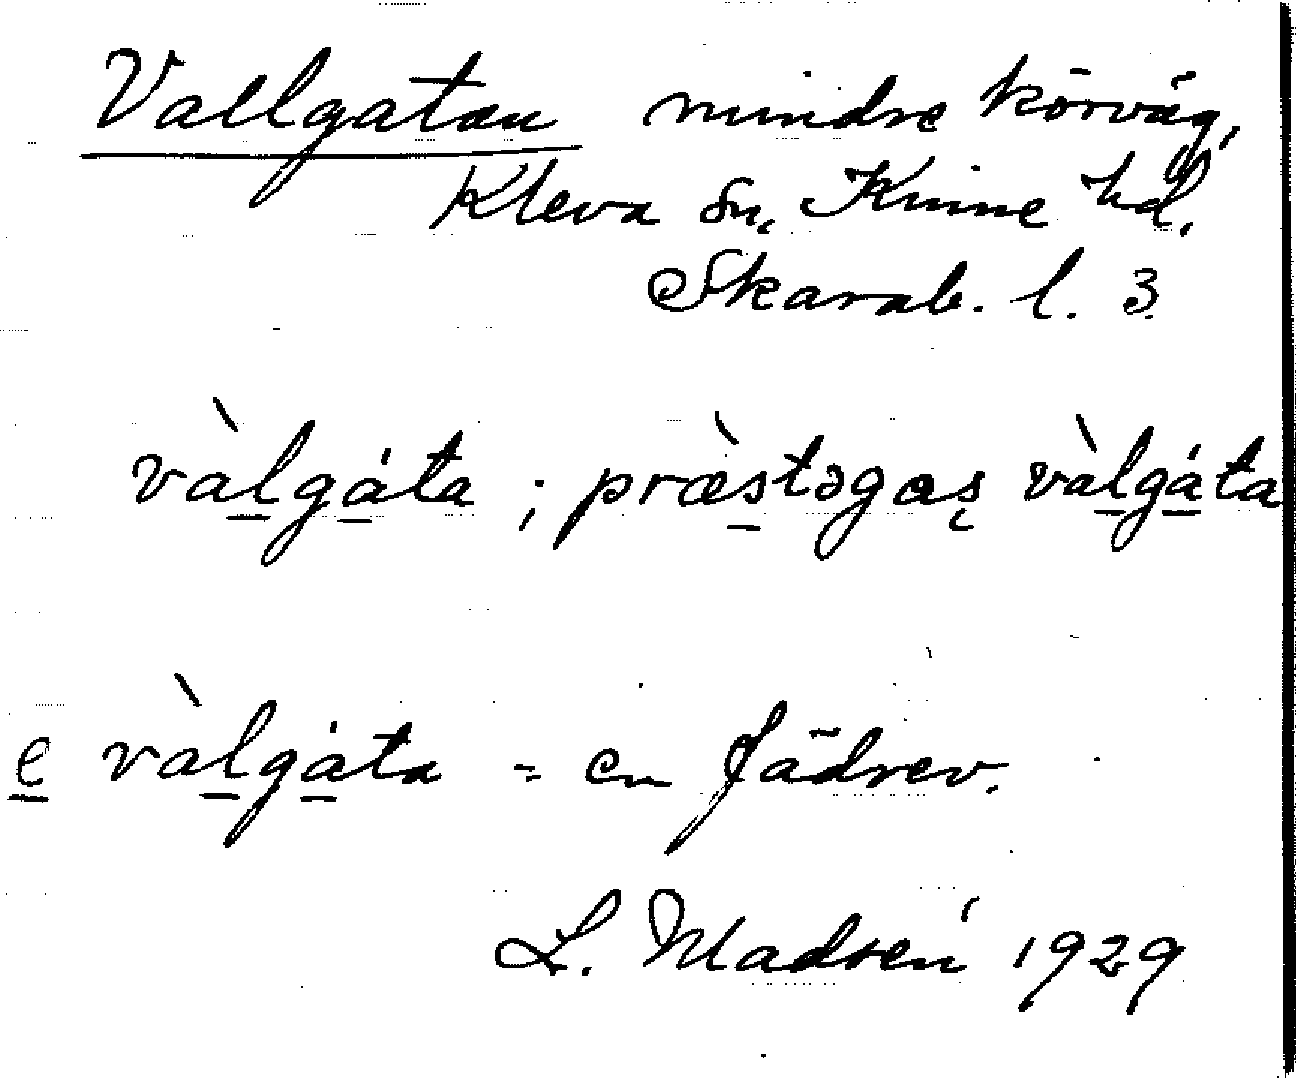 Vallgatan mindre körväg,
Kleva sn, Kinne hd.
Skarab. l. 3
và̠lgá̠ta ; præ̀s̠təgas̨ và̠lgá̠ta
e̠ và̠lgá̠ta = en fädrev.
L. Madsén 1929